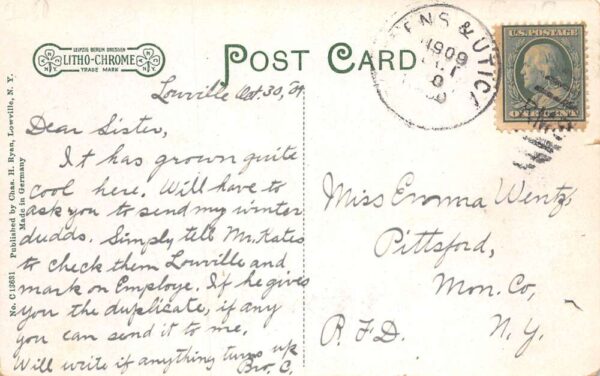 LEIPZIG BERLIN DRESDEN
LITHO-CHROME
TRADE MARK
POST CARD
ENS & UTICA
1909
U.S. POSTAGE
ONE CENT
No. C 12631 Published by Chas. H. Ryan, Lowville, N. Y.
Made in Germany
Lowville Oct. 30, 09.
Dear Sister,
It has grown quite
cool here. Will have to
ask you to send my winter
dudds. Simply tell Mr. Kates
to check them Lowville and
mark on Employe. If he gives
you the duplicate, if any
you can send it to me.
Will write if anything turns up
Bro. C.
Miss Emma Wentz,
Pittsford,
Mon. Co,
R.F.D. N.Y.